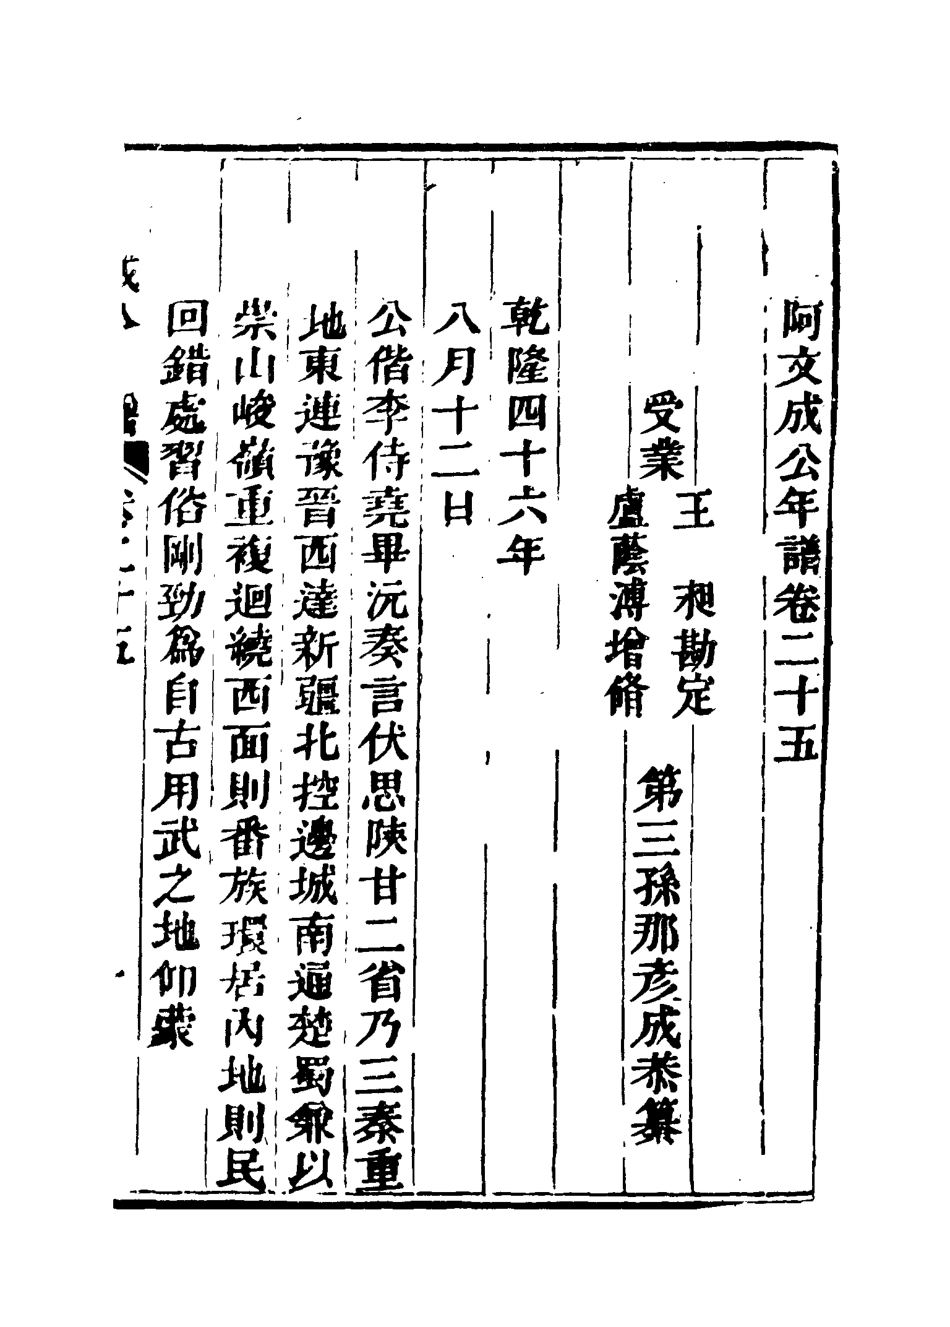 阿文成公年譜卷二十五
受業
王 昶勘定
盧蔭溥增脩
第三孫那彥成恭纂
乾隆四十六年
八月十二日
公偕李侍堯畢沅奏言伏思陝甘二省乃三秦重
地東連豫晉西達新疆北控邊城南逼楚蜀兼以
崇山峻嶺重複迴繞西面則番族環居內地則民
回錯處習俗剛勁爲自古用武之地仰蒙